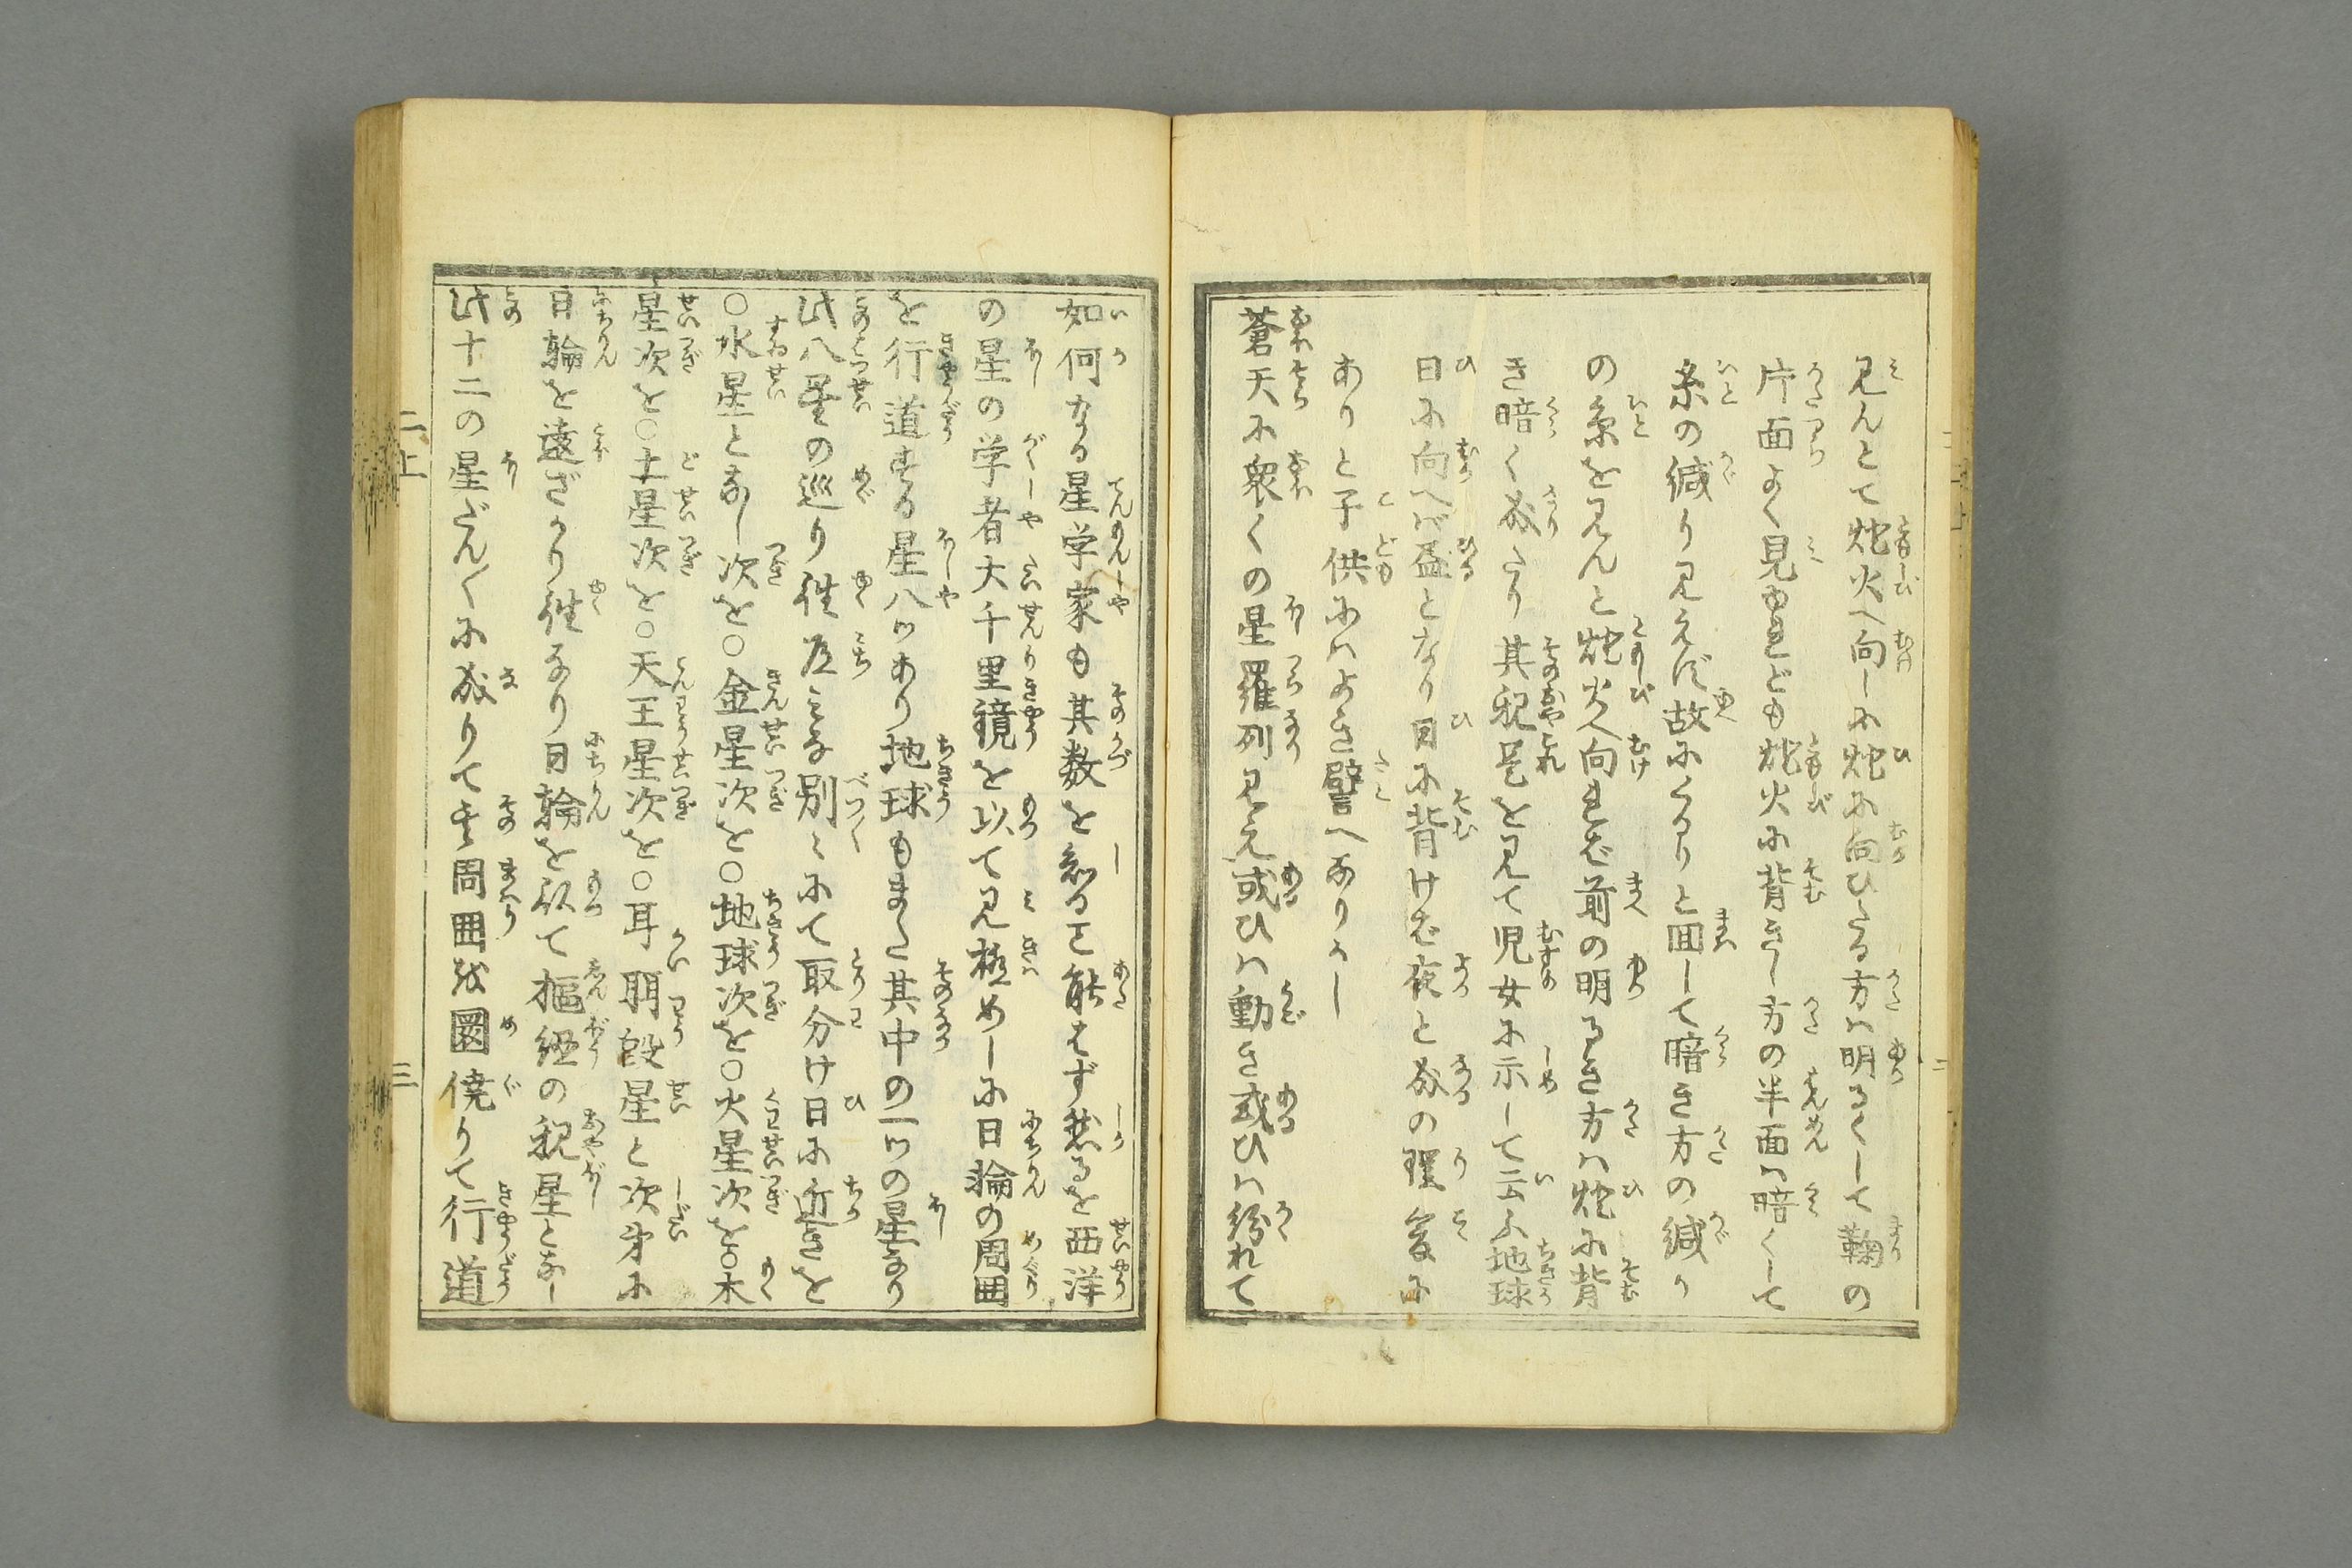 見んとて炉火へ向しに炉に向ひたる方は明るくして鞠の
片面よく見ゆれども炉火に背きし方の半面は暗くして
糸の縅り見えず故にくるりと回して暗き方の縅り
の糸を見んと炉火へ向れば前の明るき方は炉に背
き暗く成たり其親是を見て児女に示して云ふ地球
日に向へば昼となり日に背けば夜と成の理爰に
ありと子供にはよき譬へなりかし
蒼天に衆くの星羅列見え或ひは動き或ひは紛れて
如何なる星学家も其数を知ること能はず然るを西洋
の星の学者大千里鏡を以て見極めしに日輪の周囲
を行道する星八ツあり地球もまた其中の一ツの星なり
此八星の巡り往道みな別々にて取分け日に近きを
○水星となし次を○金星次を○地球次を○火星次を○木
星次を○土星次を○天王星次を○海王星と次第に
日輪を遠ざかり往なり日輪を以て枢紐の親星となし
此十二の星だん〳〵に成りて其周囲を圜僥りて行道
二上
三